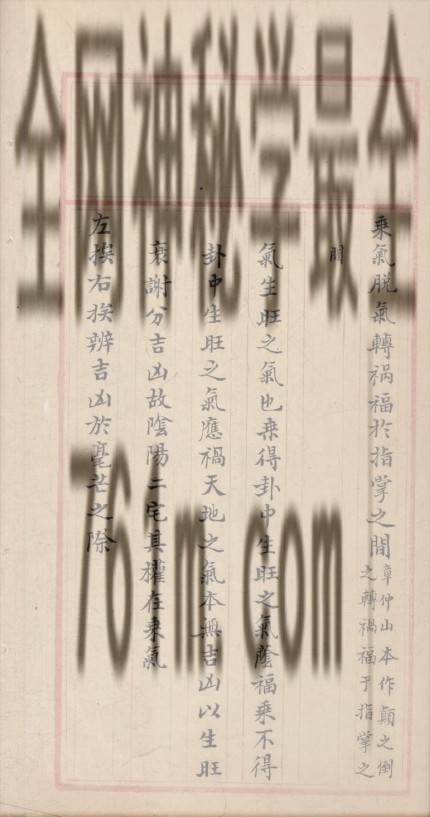 乘氣脱氣轉禍福於指掌之間章仲山本作顛之倒
之轉禍福于指掌之
間
氣生旺之氣也乘得卦中生旺之氣蔭福乘不得
卦中生旺之氣應禍天地之氣本無吉凶以生旺
衰謝分吉凶故陰陽二宅其權在乘氣
左挨右挨辨吉凶於毫芒之際
全网神秘学最全